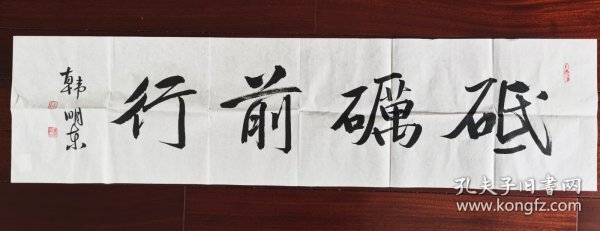 砥礪前行
韩明东
孔夫子旧书网
www.kongfz.com